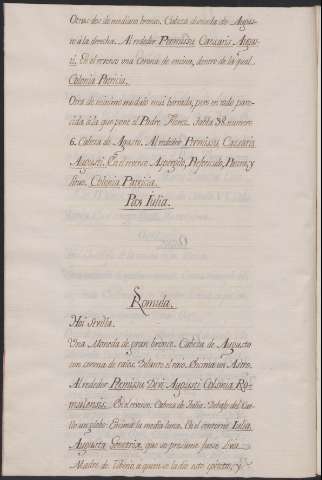 Otras dos de mediano bronce. Cabeza desnuda de Augus-
to á la derecha. Al rededor Permissu Caesaris Augus-
ti. En el reverso una Corona de encina, dentro de la qual
Colonia Patricia.
Otra de minimo modulo mui borrada, pero en todo pare-
cida á la que pone el Padre Florez. tabla 38. numero
6. Cabeza de Augusto. Al rededor Permissu Caesaris
Augusti. En el reverso Aspergilo, Prefericulo, Patera, y
Lituo. Colonia Patricia.
Pax Iulia.
Romula.
Hoi Sevilla.
Una Moneda de gran bronce. Cabeza de Augusto
con corona de raios. Delante el raio. Encima un Astro.
Al rededor Permissu Divi Augusti Colonia Ro-
mulensis. En el reverso. Cabeza de Iulia. Debajo del Cue-
llo un globo. Encima la media luna. En el contorno Iulia
Augusta Genetrix, que se presume fuese Livia
Madre de Tiberio, a quien se la dio este epiteto, y